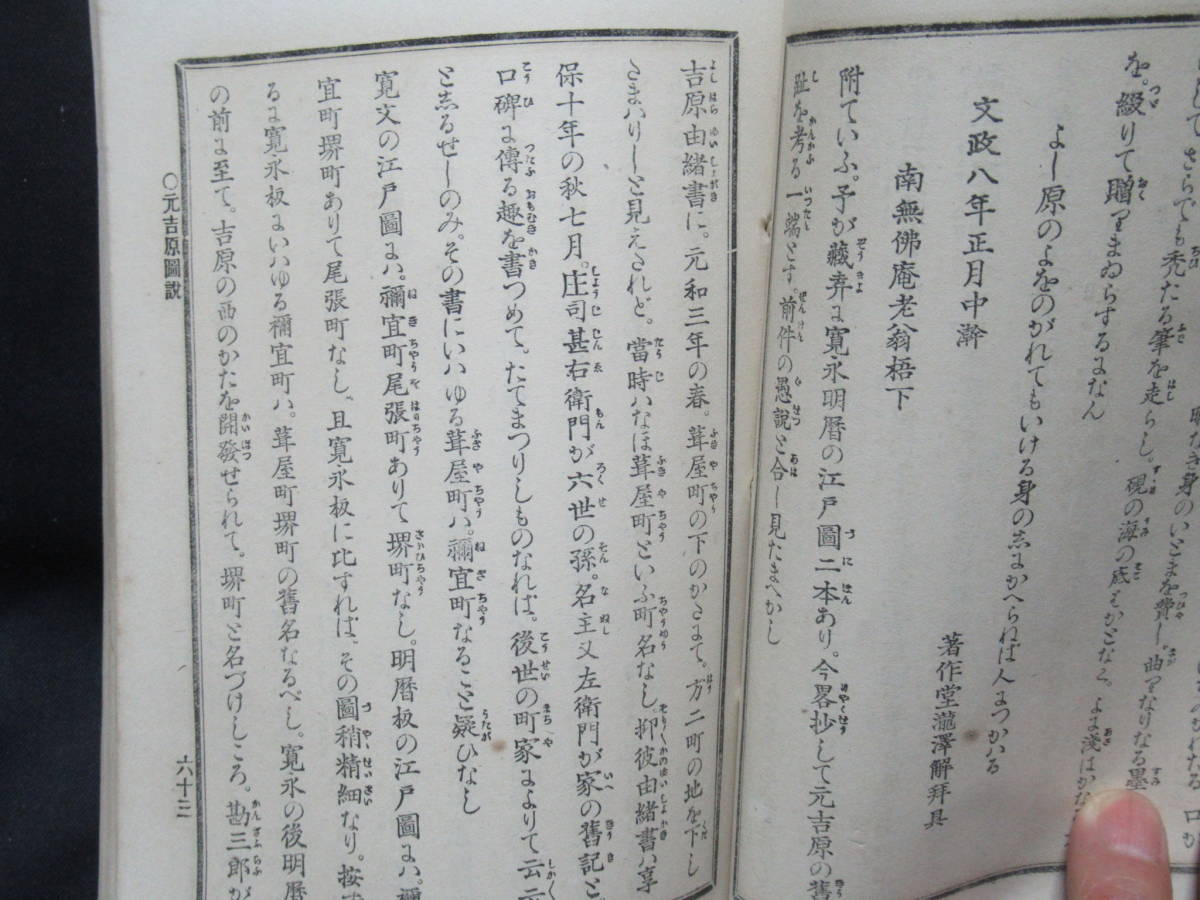 さらでも禿たる筆を走らし。硯の海の底
を。綴りて贈りまゐらするになん
よし原のよをのがれてもいける身のしにかへらねば人につかはる
文政八年正月中澣
著作堂瀧澤解拜具
南無佛庵老翁梧下
附ていふ。予が藏弆に寬永明曆の江戸圖二本あり。今畧抄して元吉原の舊
趾を考る一端とす。前件の愚說と合し見たまへかし
吉原由緖書に。元和三年の春。葺屋町の下のかたにて。方二町の地を下し
さまハりしと見えたれど。當時ハなほ葺屋町といふ町名なし。抑彼由緖書ハ享
保十年の秋七月。庄司甚右衞門が六世の孫。名主又左衞門が家の舊記と
口碑に傳る趣を書つめて。たてまつりしものなれば。後世の町家によりて云云
と志るせしのみ。その書にいハゆる葺屋町ハ。禰宜町なること疑ひなし
寬文の江戸圖にハ。禰宜町尾張町ありて堺町なし。明曆板の江戸圖にハ。禰
宜町堺町ありて尾張町なし。且寬永板に比すれば、その圖稍精細なり。按
るに寬永板にいハゆる禰宜町ハ。葺屋町堺町の舊名なるべし。寬永の後明曆
の前に至て。吉原の西のかたを開發せられて。堺町と名づけしころ。勘三郎が
○元吉原圖說
六十三